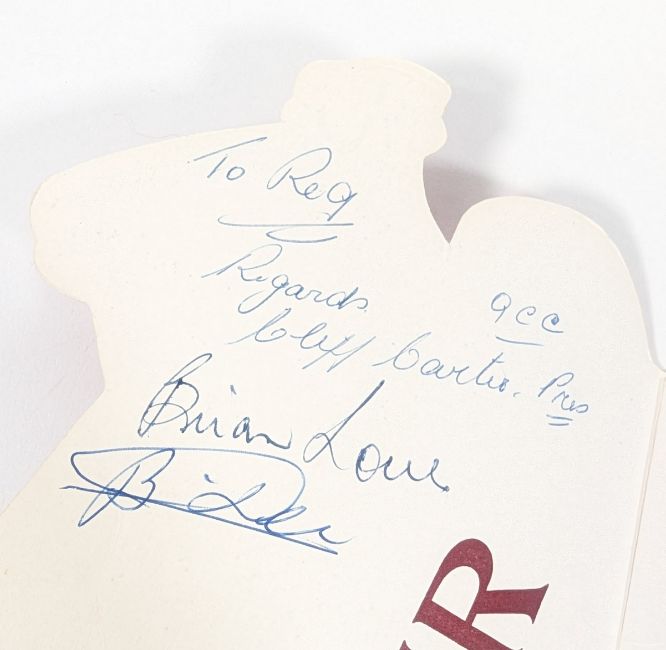 To Reg
Regards
Cliff Carter. Pres
acc
Brian Love
R